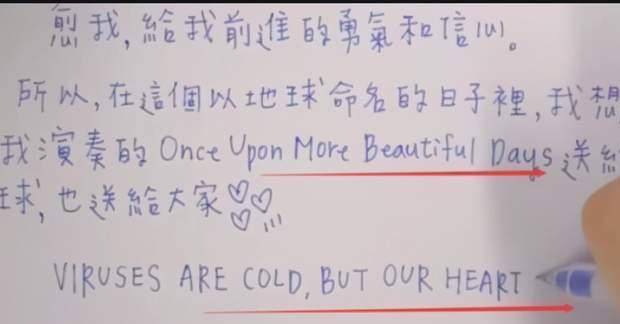 愈我,給我前進的勇氣和信心。
所以,在這個以地球命名的日子裡,我想
我演奏的 Once Upon More Beautiful Days 送給
球,也送給大家♡♡♡
VIRUSES ARE COLD, BUT OUR HEART